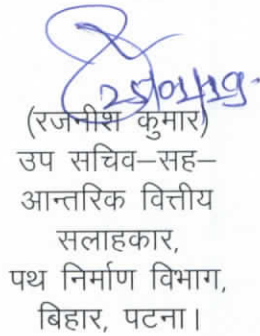 25/01/19
(रजनीश कुमार)
उप सचिव–सह–
आन्तरिक वित्तीय
सलाहकार,
पथ निर्माण विभाग,
बिहार, पटना।